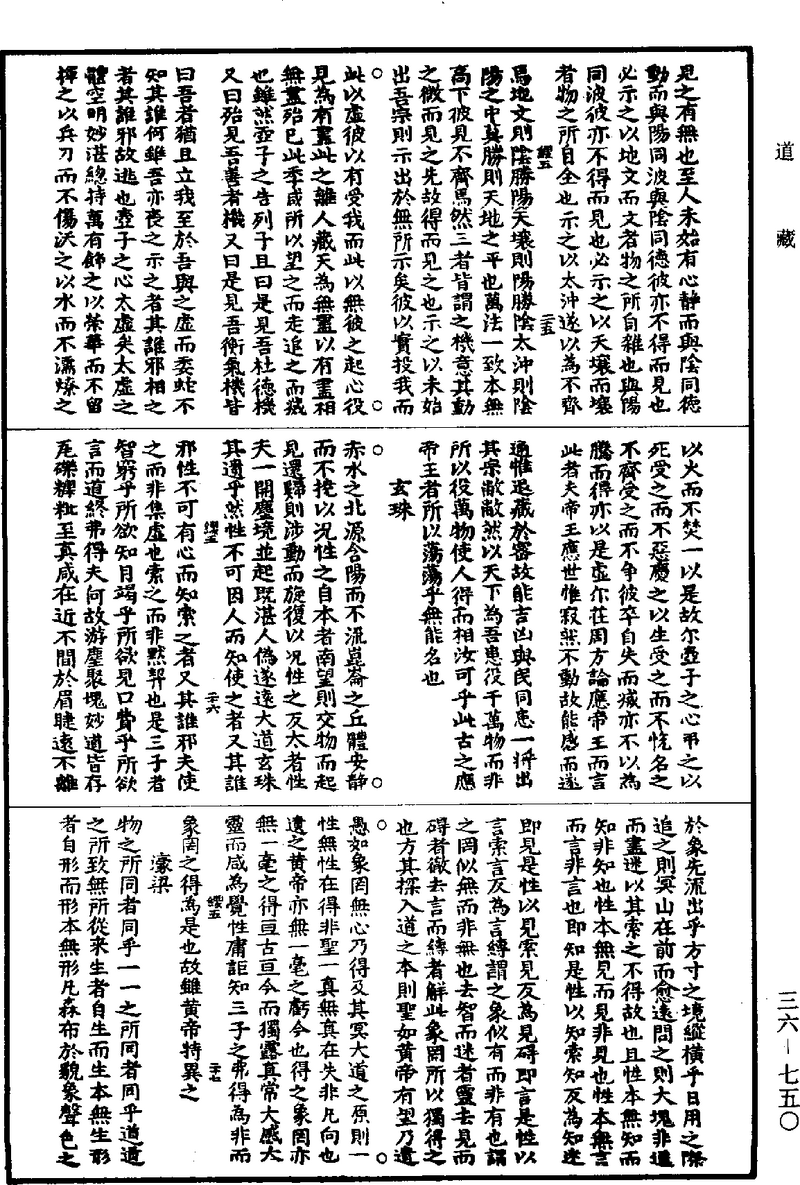 道藏
見之有無也至人未始有心靜而與陰同德
動而與陽同波與陰同德彼亦不得而見也
必示之以地文而文者物之所自雜也與陽
同波彼亦不得而見也必示之以天壤而壤
者物之所自全也示之以太沖遂以為不齊
焉地文則陰勝陽天壤則陽勝陰太沖則陰
陽之中莫勝則天地之平也萬法一致本無
高下彼見不齊焉然三者皆謂之機意其動
之微而見之先故得而見之也示之以未始
出吾宗則示出於無所示矣彼以實投我而
此以虛彼以有受我而此以無彼之起心役
見為有盡此之離人藏天為無盡以有盡相
無盡殆已此季咸所以望之而走追之而滅
也雖然壺子之告列子且曰是見吾杜德機
又曰殆見吾善者機又曰是見吾衡氣機皆
曰吾者猶且立我至於吾與之虛而委蛇不
知其誰何雖吾亦喪之示之者其誰邪相之
者其誰邪故逃也壺子之心太虛矣太虛之
體空明妙湛總持萬有飾之以榮華而不留
揮之以兵刃而不傷沃之以水而不濡燎之
以火而不焚一以是故尔壺子之心弔之以
死受之而不惡慶之以生受之而不悅名之
不齊受之而不爭彼卒自失而滅亦不以為
騰而得亦以是虛尔莊周方論應帝王而言
此者夫帝王應世惟寂然不動故能感而遂
通惟退藏於密故能吉凶與民同患一將出
其宗敝敝然以天下為吾患役于萬物而非
所以役萬物使人得而相汝可乎此古之應
帝王者所以蕩蕩乎無能名也
玄珠
赤水之北源含陽而不流崑崙之丘體安靜
而不撓以況性之自本者南望則交物而起
見還歸則涉動而旋復以況性之反太者性
夫一開塵境並起既湛人偽遂遠大道玄珠
其遺乎然性不可因人而知使之者又其誰
邪性不可有心而知索之者又其誰邪夫使
之而非集虛也索之而非默契也是三子者
智窮乎所欲知目竭乎所欲見口費乎所欲
言而道終弗得夫何故游塵聚塊妙道皆存
瓦礫糲粃至真咸在近不間於眉睫遠不離
於象先流出乎方寸之境縱橫乎日用之際
追之則冥山在前而愈遠問之則大塊非道
而盡迷以其索之不得故也且性本無知而
知非知也性本無見而見非見也性本無言
而言非言也即知是性以知索知反為知迷
即見是性以見索見反為見礙即言是性以
言索言反為言縛謂之象似有而非有也謂
之罔似無而非無也去智而迷者靈去見而
礙者徹去言而縛者解此象罔所以獨得之
也方其探入道之本則聖如黃帝有望乃遺
愚如象罔無心乃得及其冥大道之原則一
性無性在得非聖一真無真在失非凡向也
遺之黃帝亦無一毫之虧今也得之象罔亦
無一毫之得亘古亘今而獨露真常大感大
靈而咸為覺性庸詎知三子之弗得為非而
象罔之得為是也故雖黃帝特異之
濠梁
物之所同者同乎一一之所同者同乎道道
之所致無所從來生者自生而生本無生形
者自形而形本無形凡森布於貌象聲色之
繆五
二十五
繆五
二十六
繆五
二十七
三六－七五〇